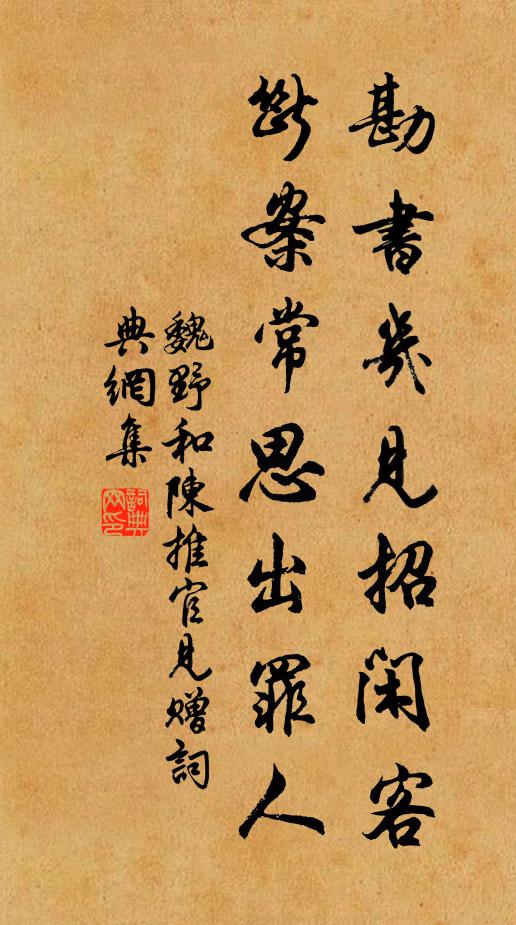 勘書幾見招閑客
斷案常思出罪人
魏野和陳推官見贈詞
典網集
詞典網印